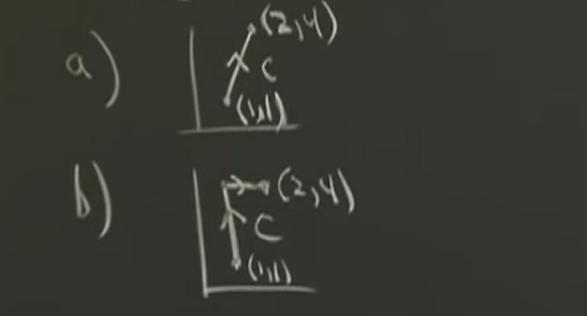 (2,4)
a)
C
(1,1)
b)
(2,4)
C
(1,1)